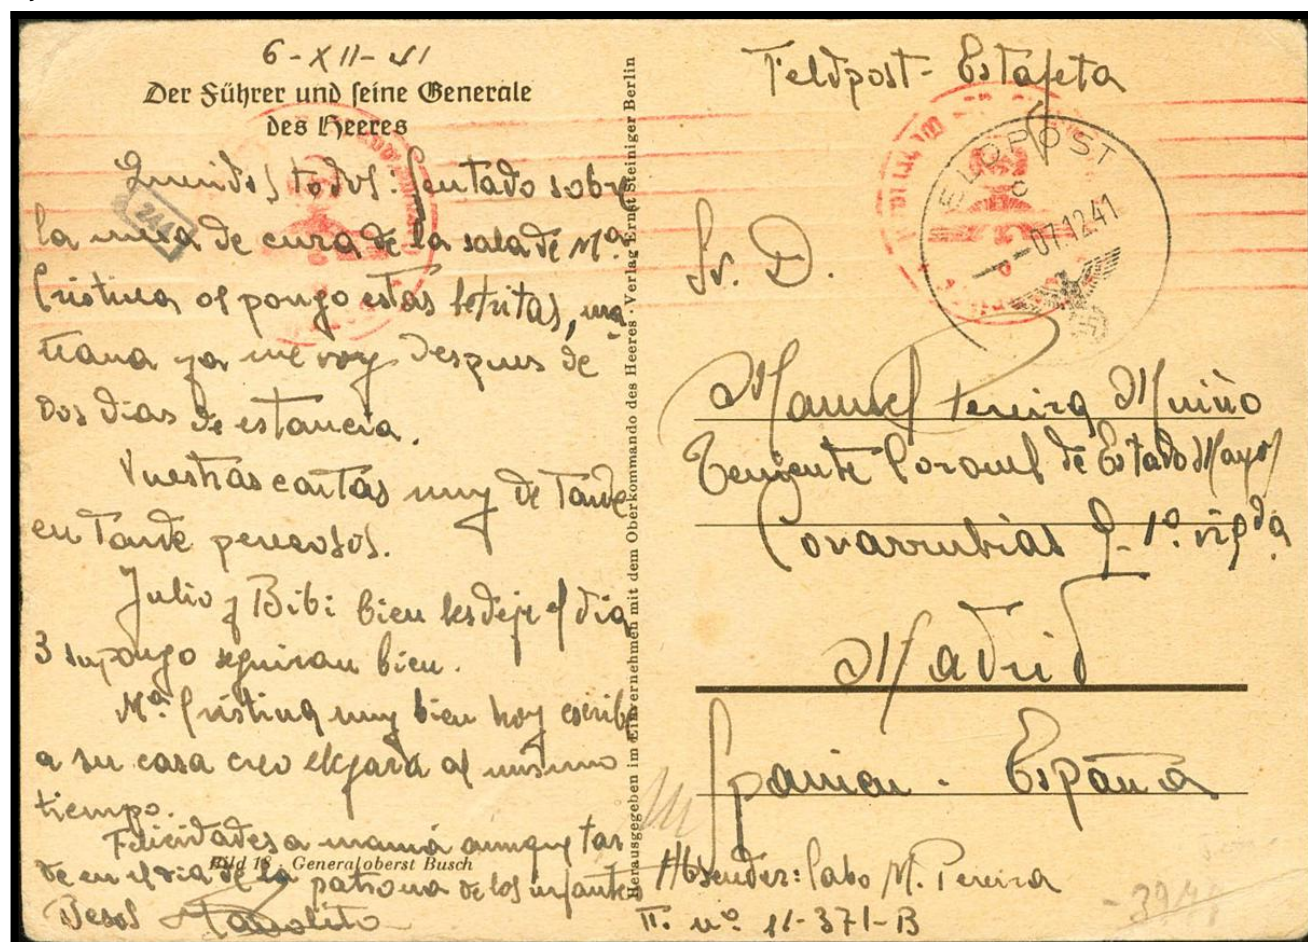 6-XII-41
Der Führer und seine Generale
des Heeres
Queridos todos: Sentado sobre
la mesa de cura de la sala de Mª
Cristina os pongo estas letritas, ma
ñana ya me voy despues de
dos dias de estancia.
Vuestras cartas muy de Tarde
en Tarde perezosos.
Julio y Bibi bien les deje el dia
3 supongo seguiran bien.
Mª Cristina muy bien hoy escribe
a su casa creo llegara al mismo
tiempo.
Felicidades a mamá aunque tar
de en el dia de la patrona de los infantes
Bild 18 · Generaloberst Busch
Besos Manolito
244
Herausgegeben im Einvernehmen mit dem Oberkommando des Heeres · Verlag Ernst Steiniger Berlin
Feldpost - Estafeta
FELDPOST
c
-07.12.41
Sr. D.
Manuel Pereira Muiño
Teniente Coronel de Estado Mayor
Covarrubias 1º izqda
Madrid
Spanien - España
Absender: Cabo M. Pereira